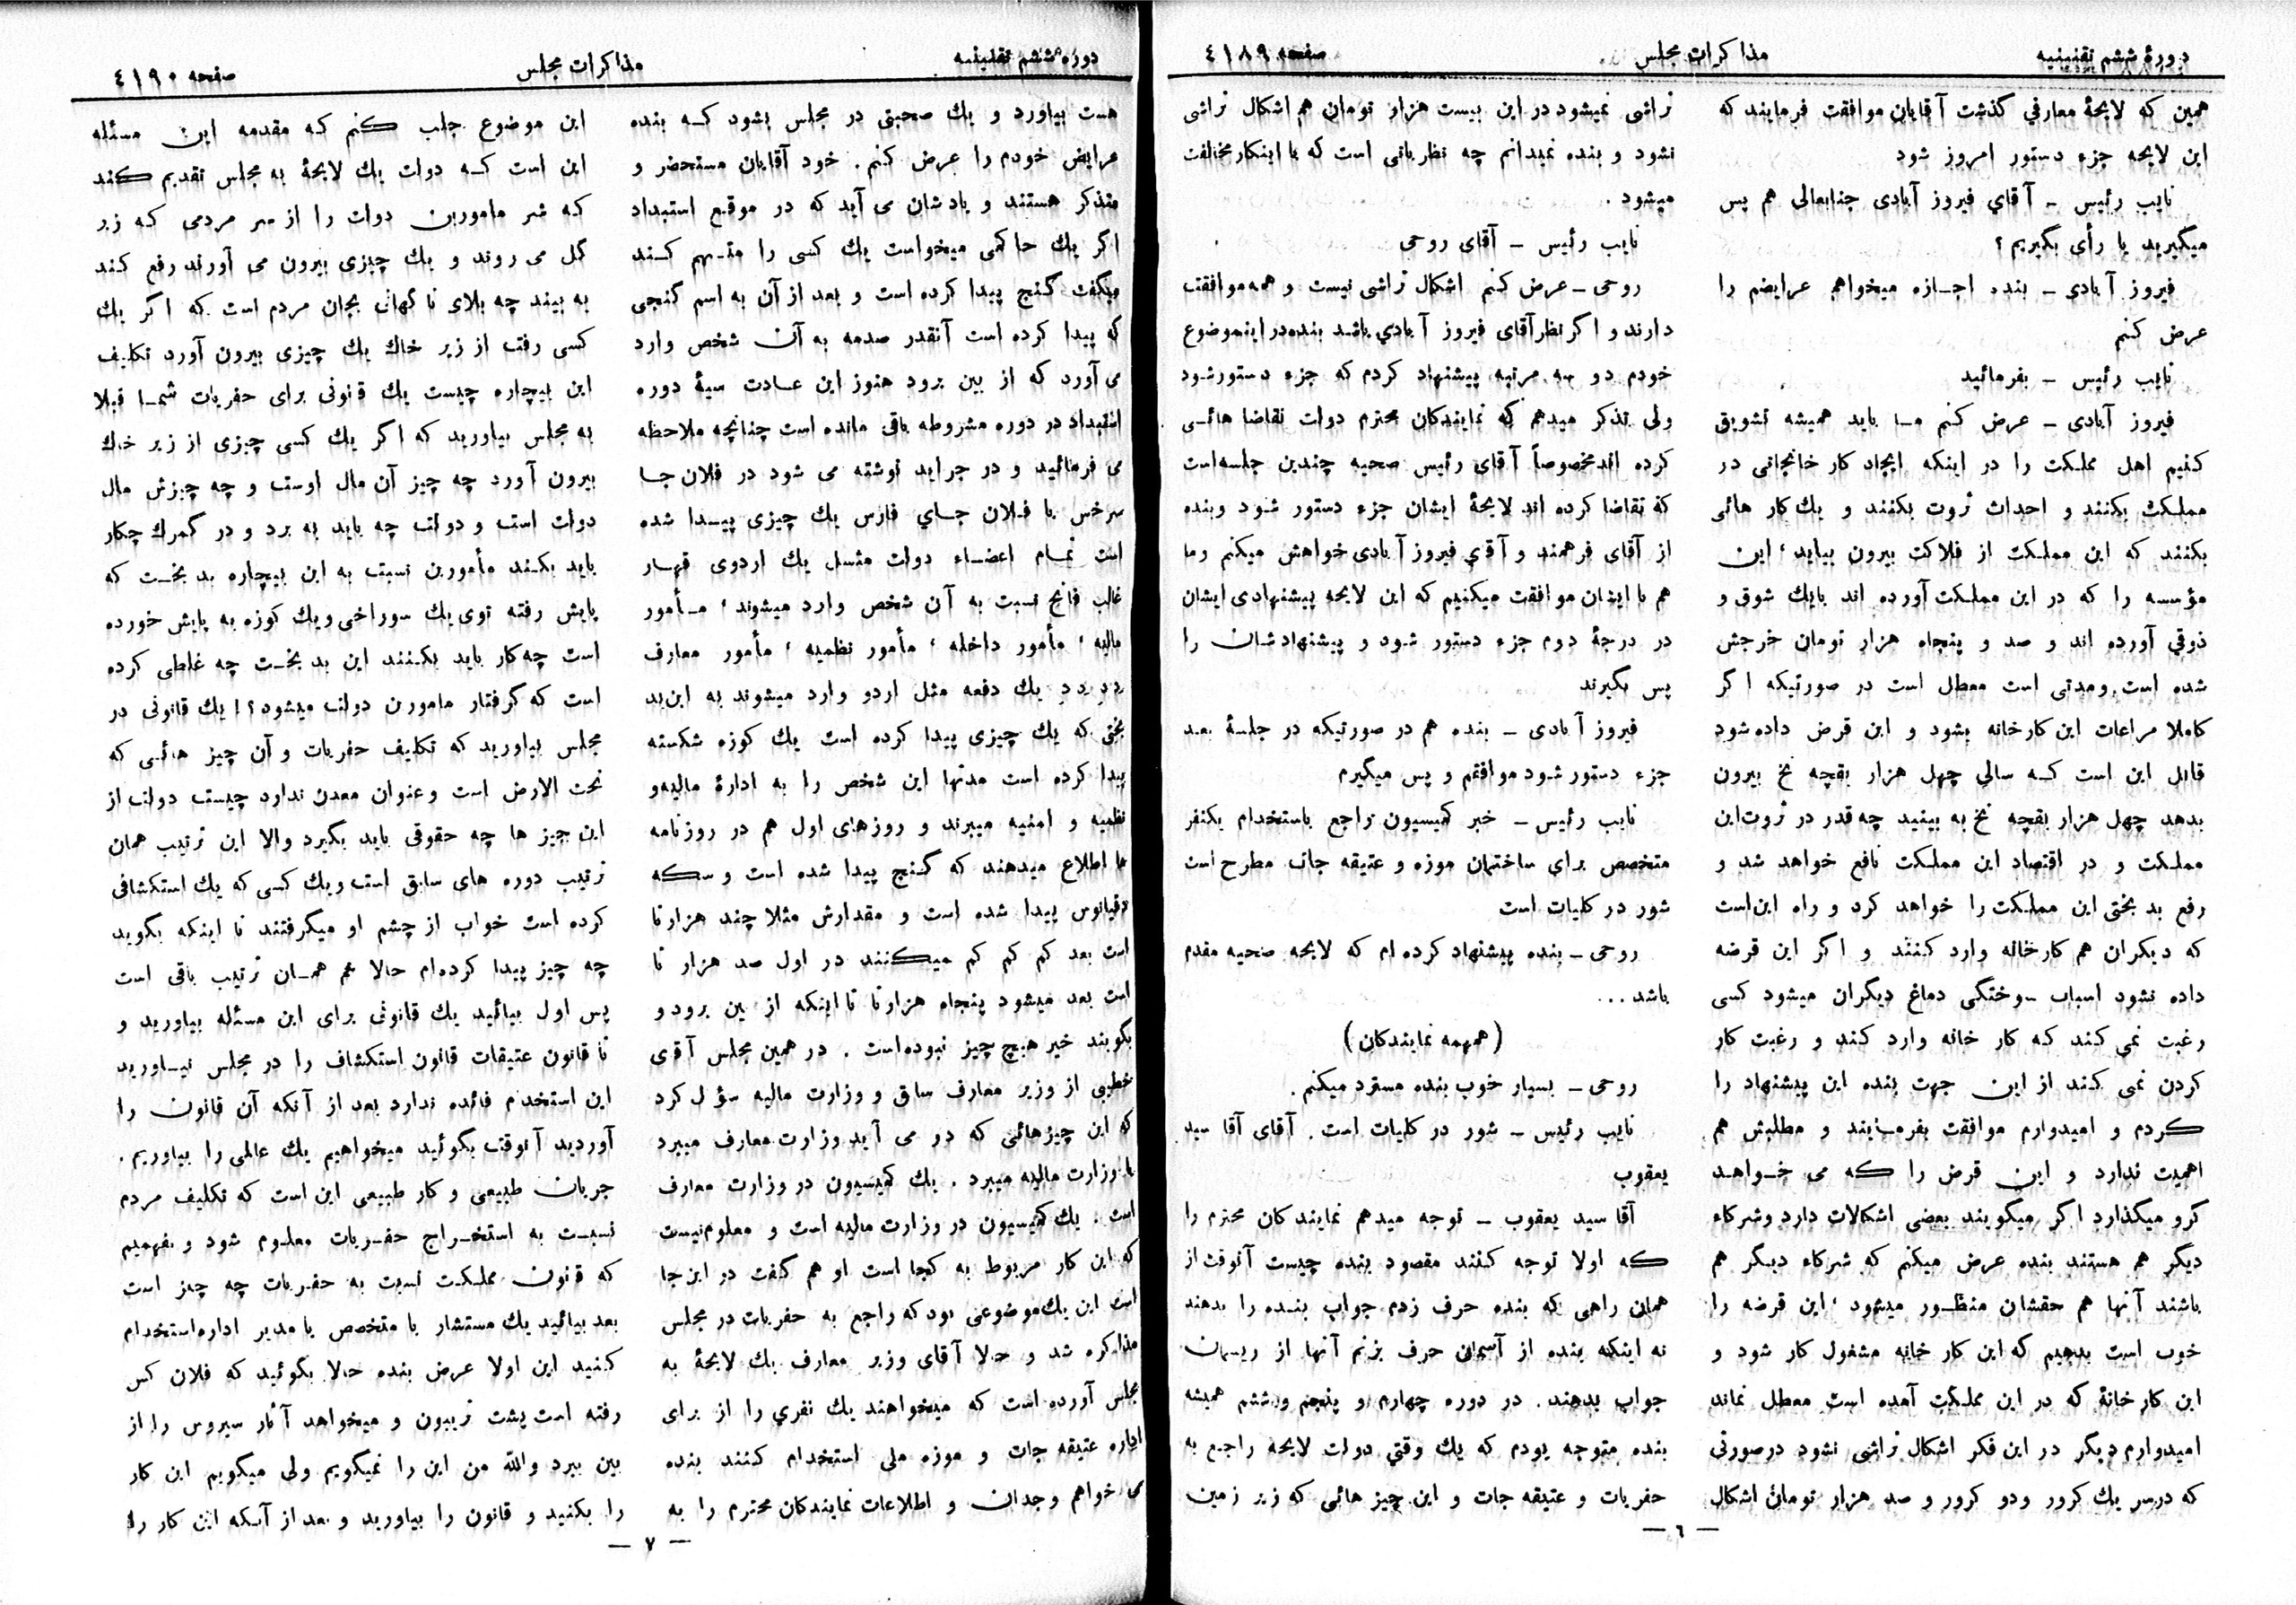 دورهٔ ششم تقنینیه
مذاکرات مجلس
صفحه ٤١٨٩
همین که لایحهٔ معارفي گذشت آقایان موافقت فرمایند که
این لایحه جزء دستور امروز شود
نایب رئیس ـ آقاي فیروز آبادی جنابعالی هم پس
میگیرید یا رأی بگیریم؟
فیروز آبادي ـ بنده اجازه میخواهم عرایضم را
عرض کنم
نایب رئیس ـ بفرمائید
فیروز آبادی ـ عرض کنم ما باید همیشه تشویق
کنیم اهل مملکت را در اینکه ایجاد کار خانجاتی در
مملکت بکنند و احداث ثروت بکنند و یك کار هائی
بکنند که این مملکت از فلاکت بیرون بیاید، این
مؤسسه را که در این مملکت آورده اند بایك شوق و
ذوقي آورده اند و صد و پنجاه هزار تومان خرجش
شده است ومدتی است معطل است در صورتیکه اگر
کاملا مراعات این کارخانه بشود و این قرض داده شود
قابل این است که سالي چهل هزار بقچه نخ بیرون
بدهد چهل هزار بقچه نخ به بینید چه قدر در ثروت این
مملکت و در اقتصاد این مملکت نافع خواهد شد و
رفع بد بختی این مملکت را خواهد کرد و راه این است
که دیگران هم کارخانه وارد کنند و اگر این قرضه
داده نشود اسباب سوختگی دماغ دیگران میشود کسی
رغبت نمی کند که کار خانه وارد کند و رغبت کار
کردن نمی کند از این جهت بنده این پیشنهاد را
کردم و امیدوارم موافقت بفرمایند و مطلبش هم
اهمیت ندارد و این قرض را که می خواهد
گرو میگذارد اگر میگویند بعضی اشکالات دارد وشرکاء
دیگر هم هستند بنده عرض میکنم که شرکاء دیگر هم
باشند آنها هم حقشان منظور میشود، این قرضه را
خوب است بدهیم که این کار خانه مشغول کار شود و
این کارخانهٔ که در این مملکت آمده است معطل نماند
امیدوارم دیگر در این فکر اشکال تراشی نشود درصورتی
که درسر یك کرور ودو کرور و صد هزار تومان اشکال
تراشی نمیشود در این بیست هزار تومان هم اشکال تراشی
نشود و بنده نمیدانم چه نظریاتی است که با اینکار مخالفت
میشود .
نایب رئیس ـ آقای روحی
روحی ـ عرض کنم اشکال تراشی نیست و همه موافقت
دارند و اگر نظر آقای فیروز آبادي باشد بنده در اینموضوع
خودم دو سه مرتبه پیشنهاد کردم که جزء دستور شود
ولی تذکر میدهم که نمایندگان محترم دولت تقاضا هائی
کرده اند مخصوصاً آقای رئیس صحیه چندین جلسه است
که تقاضا کرده اند لایحهٔ ایشان جزء دستور شود وبنده
از آقای فرهمند و آقای فیروز آبادی خواهش میکنم وما
هم با ایشان موافقت میکنیم که این لایحه پیشنهادی ایشان
در درجهٔ دوم جزء دستور شود و پیشنهادشان را
پس بگیرند
فیروز آبادی ـ بنده هم در صورتیکه در جلسهٔ بعد
جزء دستور شود موافقم و پس میگیرم
نایب رئیس ـ خبر کمیسیون راجع باستخدام یکنفر
متخصص برای ساختمان موزه و عتیقه جات مطرح است
شور در کلیات است
روحی ـ بنده پیشنهاد کرده ام که لایحه صحیه مقدم
باشد ...
(همهمه نمایندگان)
روحی ـ بسیار خوب بنده مسترد میکنم .
نایب رئیس ـ شور در کلیات است . آقای آقا سید
یعقوب
آقا سید یعقوب ـ توجه میدهم نمایندگان محترم را
که اولا توجه کنند مقصود بنده چیست آنوقت از
همان راهی که بنده حرف زدم جواب بنده را بدهند
نه اینکه بنده از آسمان حرف بزنم آنها از ریسمان
جواب بدهند . در دوره چهارم و پنجم وششم همیشه
بنده متوجه بودم که یك وقتی دولت لایحه راجع به
حفریات و عتیقه جات و این چیز هائی که زیر زمین
— ٦ —
دوره ششم تقنینیه
مذاکرات مجلس
صفحه ٤١٩٠
هست بیاورد و یك صحبتی در مجلس بشود که بنده
عرایض خودم را عرض کنم . خود آقایان مستحضر و
متذکر هستند و یادشان می آید که در موقع استبداد
اگر یك حاکمی میخواست یك کسی را متهم کند
میگفت گنج پیدا کرده است و بعد از آن به اسم گنجی
که پیدا کرده است آنقدر صدمه به آن شخص وارد
می آورد که از بین برود هنوز این عادت سیهٔ دوره
استبداد در دوره مشروطه باقی مانده است چنانچه ملاحظه
می فرمائید و در جراید نوشته می شود در فلان جا
سرخس یا فلان جاي فارس یك چیزی پیدا شده
است تمام اعضاء دولت مثل یك اردوی قهار
غالب فاتح نسبت به آن شخص وارد میشوند، مأمور
مالیه، مأمور داخله، مأمور نظمیه، مأمور معارف
یك دفعه مثل اردو وارد میشوند به این بد
بختی که یك چیزی پیدا کرده است یك کوزه شکسته
پیدا کرده است مدتها این شخص را به ادارهٔ مالیه و
نظمیه و امنیه میبرند و روزهای اول هم در روزنامه
ها اطلاع میدهند که گنج پیدا شده است و سکه
دقیانوس پیدا شده است و مقدارش مثلا چند هزار تا
است بعد کم کم کم میکنند در اول صد هزار تا
است بعد میشود پنجاه هزار تا تا اینکه از بین برود و
بگویند خیر هیچ چیز نبوده است . در همین مجلس آقای
خطیبی از وزیر معارف سابق و وزارت مالیه سؤال کرد
که این چیزهائی که در می آید وزارت معارف میبرد
یا وزارت مالیه میبرد . یك کمیسیون در وزارت معارف
است . یك کمیسیون در وزارت مالیه است و معلوم نیست
که این کار مربوط به کجا است او هم گفت در این جا
است این یك موضوعی بود که راجع به حفریات در مجلس
مذاکره شد و حالا آقای وزیر معارف یك لایحهٔ به
مجلس آورده است که میخواهند یك نفري را از برای
اداره عتیقه جات و موزه ملی استخدام کنند بنده
می خواهم وجدان و اطلاعات نمایندگان محترم را به
این موضوع جلب کنم که مقدمه این مسئله
این است که دولت یك لایحهٔ به مجلس تقدیم کند
که شر مامورین دولت را از سر مردمی که زیر
گل می روند و یك چیزی بیرون می آورند رفع کند
به بیند چه بلای ناگهانی بجان مردم است که اگر یك
کسی رفت از زیر خاك یك چیزی بیرون آورد تکلیف
این بیچاره چیست یك قانونی برای حفریات شما قبلا
به مجلس بیاورید که اگر یك کسی چیزی از زیر خاك
بیرون آورد چه چیز آن مال اوست و چه چیزش مال
دولت است و دولت چه باید به برد و در گمرك چکار
باید بکند مأمورین نسبت به این بیچاره بد بخت که
پایش رفته توی یك سوراخی ویك کوزه به پایش خورده
است چه کار باید بکنند این بد بخت چه غلطی کرده
است که گرفتار مامورین دولت میشود؟! یك قانونی در
مجلس بیاورید که تکلیف حفریات و آن چیز هائی که
تحت الارض است وعنوان معدن ندارد چیست دولت از
این چیز ها چه حقوقی باید بگیرد والا این ترتیب همان
ترتیب دوره های سابق است ویك کسی که یك استکشافی
کرده است خواب از چشم او میگرفتند تا اینکه بگوید
چه چیز پیدا کرده ام حالا هم همان ترتیب باقی است
پس اول بیائید یك قانونی برای این مسئله بیاورید و
تا قانون عتیقات قانون استکشاف را در مجلس نیاورید
این استخدام فائده ندارد بعد از آنکه آن قانون را
آوردید آنوقت بگوئید میخواهیم یك عالمی را بیاوریم .
جریان طبیعی و کار طبیعی این است که تکلیف مردم
نسبت به استخراج حفریات معلوم شود و بفهمیم
که قانون مملکت نسبت به حفریات چه چیز است
بعد بیائید یك مستشار یا متخصص یا مدیر اداره استخدام
کنید این اولا عرض بنده حالا بگوئید که فلان کس
رفته است پشت تریبون و میخواهد آثار سیروس را از
بین ببرد والله من این را نمیگویم ولی میگویم این کار
را بکنید و قانون را بیاورید و بعد از آنکه این کار را
— ٧ —